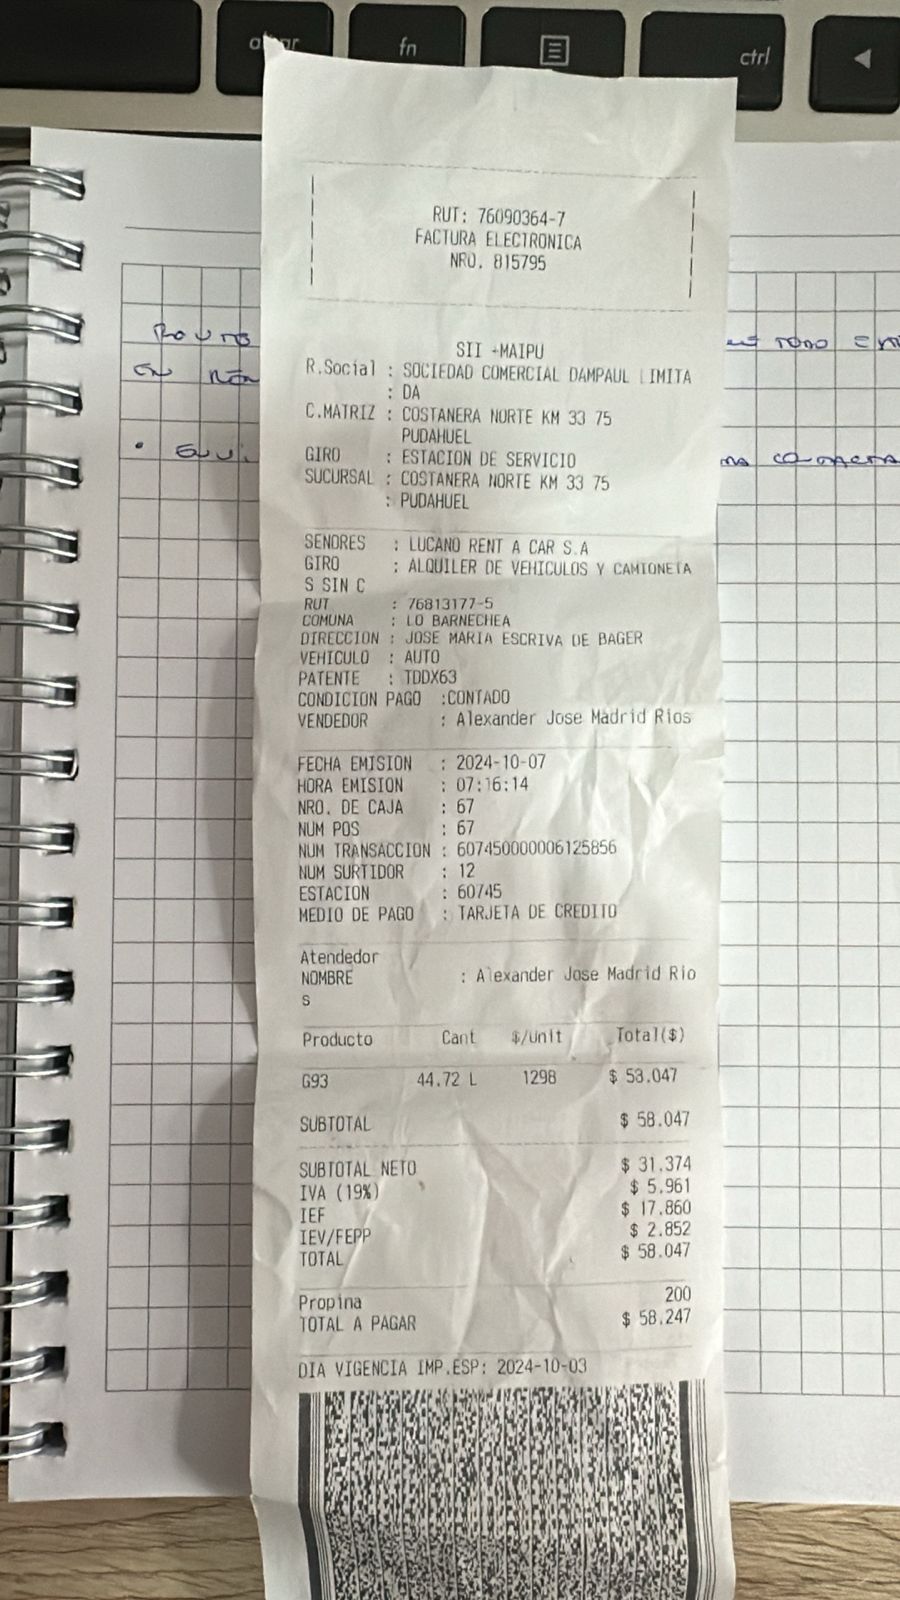 fn
ctrl
RUT: 76090364-7
FACTURA ELECTRONICA
NRO. 815795
SII -MAIPU
R.Social : SOCIEDAD COMERCIAL DAMPAUL LIMITA
: DA
C.MATRIZ : COSTANERA NORTE KM 33 75
PUDAHUEL
GIRO : ESTACION DE SERVICIO
SUCURSAL : COSTANERA NORTE KM 33 75
: PUDAHUEL
SENORES : LUCANO RENT A CAR S.A
GIRO : ALQUILER DE VEHICULOS Y CAMIONETA
S SIN C
RUT : 76813177-5
COMUNA : LO BARNECHEA
DIRECCION : JOSE MARIA ESCRIVA DE BAGER
VEHICULO : AUTO
PATENTE : TDDX63
CONDICION PAGO :CONTADO
VENDEDOR : Alexander Jose Madrid Rios
FECHA EMISION : 2024-10-07
HORA EMISION : 07:16:14
NRO. DE CAJA : 67
NUM POS : 67
NUM TRANSACCION : 607450000006125856
NUM SURTIDOR : 12
ESTACION : 60745
MEDIO DE PAGO : TARJETA DE CREDITO
Atendedor
NOMBRE : Alexander Jose Madrid Rio
s
Producto Cant $/unit Total($)
G93 44.72 L 1298 $ 58.047
SUBTOTAL $ 58.047
SUBTOTAL NETO $ 31.374
IVA (19%) $ 5.961
IEF $ 17.860
IEV/FEPP $ 2.852
TOTAL $ 58.047
Propina 200
TOTAL A PAGAR $ 58.247
DIA VIGENCIA IMP.ESP: 2024-10-03